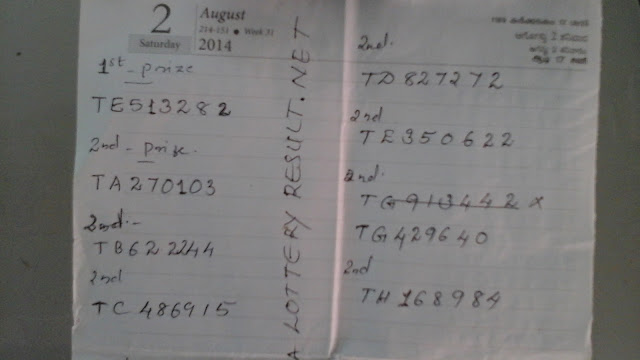 2
Saturday
August
214-151 ● Week 31
2014
1st - prize
TE 513282
2nd - prize.
TA 270103
2nd.-
TB 622244
2nd
TC 486915
A LOTTERY RESULT.NET
2nd.
TD 827272
2nd
TE 350622
2nd.
TG 913442 x
TG 429640
2nd
TH 168984